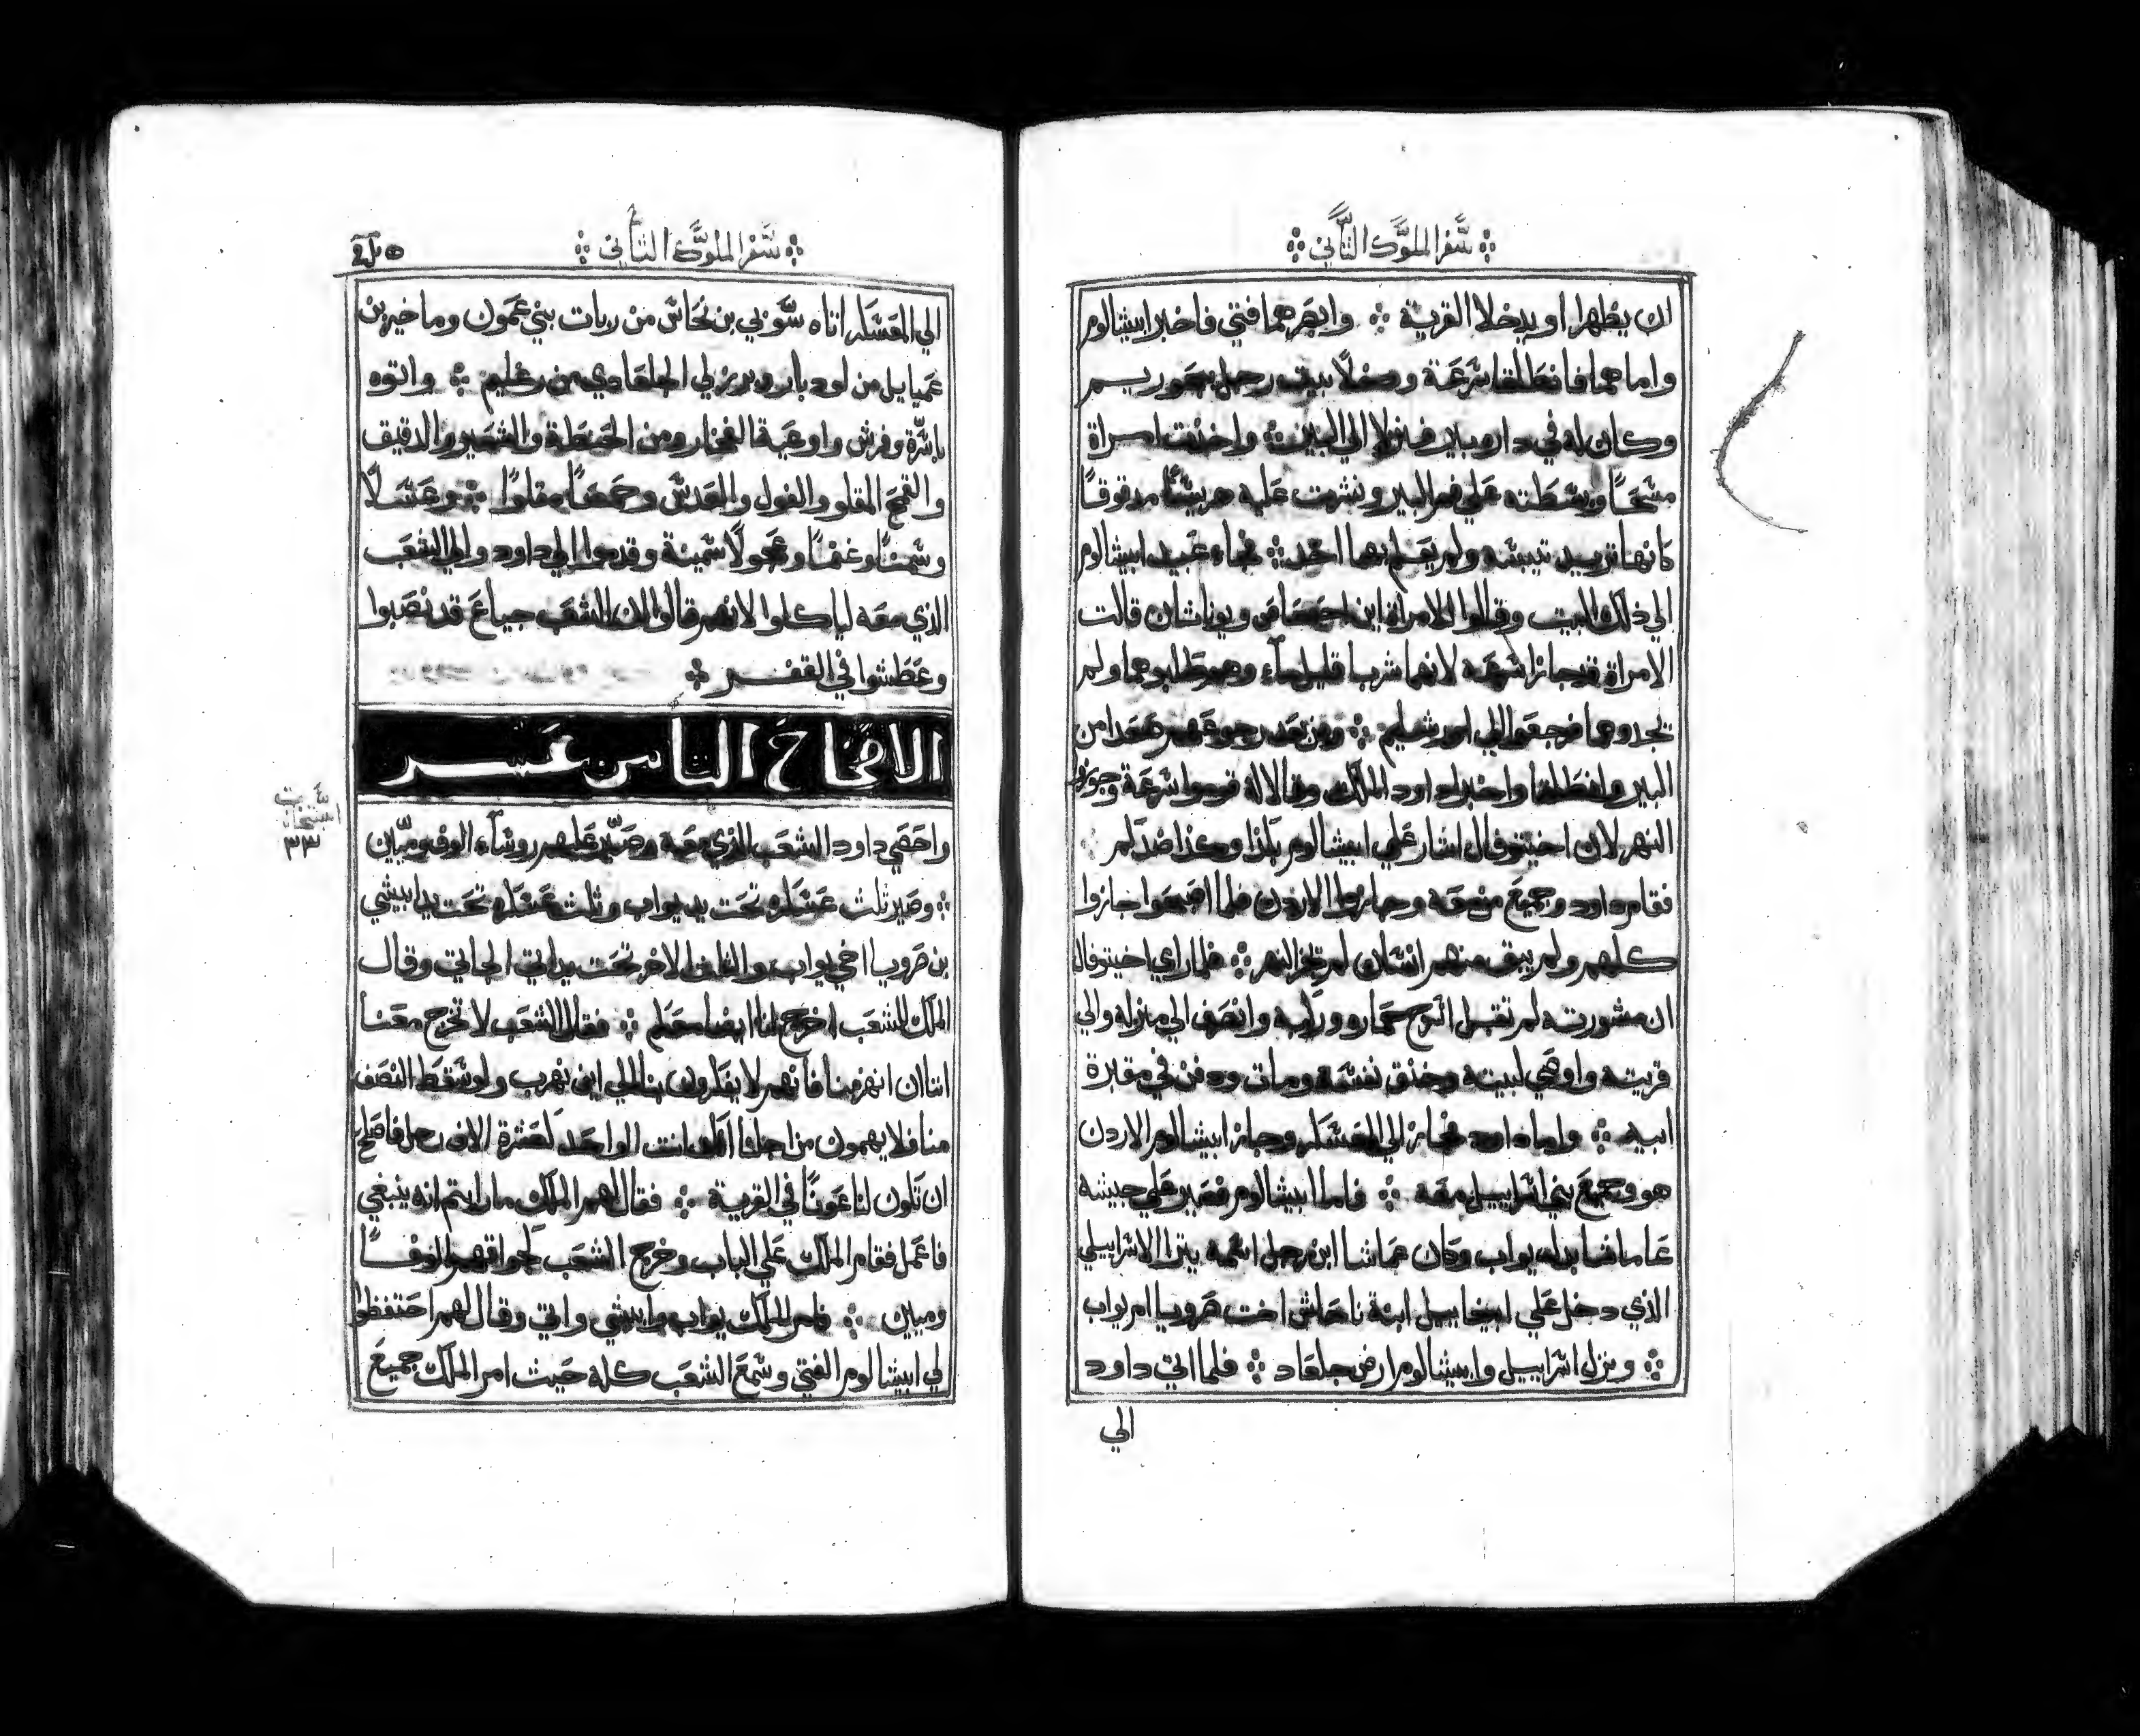 سفر الملوك الثاني
ان يظهرا او يدخلا القرية وابصرهما فتي فاخبر ابيشالوم
واما هما فانطلقا سرعة ودخلا بيت رجل بحوريم
وكان له في داره بير فنزلا الي البير واخذت امراة
مسحا وبسطته علي فم البير ونثرت عليه هريسا مدقوقا
كانها تريد تيبسه ولم يعلم بهما احد فجاء عبيد ابيشالوم
الي ذلك البيت وقالوا للامراة اين احيمعاص ويوناثان قالت
الامراة قد جازا سرعه لانهما شربا قليل مآء وهم طلبوهما ولم
يجدوهما فرجعوا الي اورشليم ومن بعد رجوعهم صعدا من
البير وانطلقا واخبرا داود الملك وقالا له قوموا سرعة وجوزوا
النهر لان اخيتوفال اشار علي ابيشالوم بكذا وكذا ضدكم
فقام داود وجميع من معه وجازوا الاردن فلما اصبحوا جازوا
كلهم ولم يبق منهم انسان لم يجز النهر فلما راي اخيتوفال
ان مشورته لم تقبل اسرج حماره وركبه وانصرف الي منزله والي
قريته واوصي لبيته وخنق نفسه ومات ودفن في مقبرة
ابيه واما داود فجاز الي العسكر وجاز ابيشالوم الاردن
هو وجميع بني اسراييل معه فاما ابيشالوم فصير علي جيشه
عاماسا بدل يواب وكان عماسا ابن رجل اسمه يترا الاسراييلي
الذي دخل علي ابيغاييل ابنة ناحاش اخت صرويا ام يواب
ونزل اسراييل وابيشالوم ارض جلعاد فلما اتي داود
الي
سفر الملوك الثاني
الي العسكر اتاه سوبي بن نحاس من ربات بني عمون وماخير بن
عميايل من لودبار وبرزلي الجلعادي من رغليم واتوه
باسرة وفرش واوعية الفخار ومن الحنطة والشعير والدقيق
والقمح المقلو والفول والعدس وحمصا مقلوا وعسلا
وسمنا وغنما وعجولا سمينة وقدموا الي داود والي الشعب
الذي معه لياكلوا لانهم قالوا ان الشعب جياع قد نصبوا
وعطشوا في القفر
الاصحاح الثامن عشر
واحصي داود الشعب الذي معه وصير عليهم روسآء الوف وميين
وصير ثلث عسكره تحت يد يواب وثلث عسكره تحت يد ابيشي
بن صرويا اخي يواب والثلث الاخر تحت يد اتي الجاتي وقال
الملك للشعب اخرج انا ايضا معكم فقال الشعب لا تخرج معنا
اننا ان انهزمنا فانهم لا يفكرون بنا الي اين نهرب ولو سقط النصف
منا فلا يهمون من اجلنا لكن انت الواحد كعشرة الاف رجل فاصلح
ان تكون لنا عونا في القرية فقال لهم الملك ما رايتم انه ينبغي
فاعمل فقام الملك علي الباب وخرج الشعب لجوا قهم الوفا
وميين فامر الملك يواب وابيشي واتي وقال لهم احتفظوا
لي ابيشالوم الفتي وسمع الشعب كله حيث امر الملك جميع
٣٣